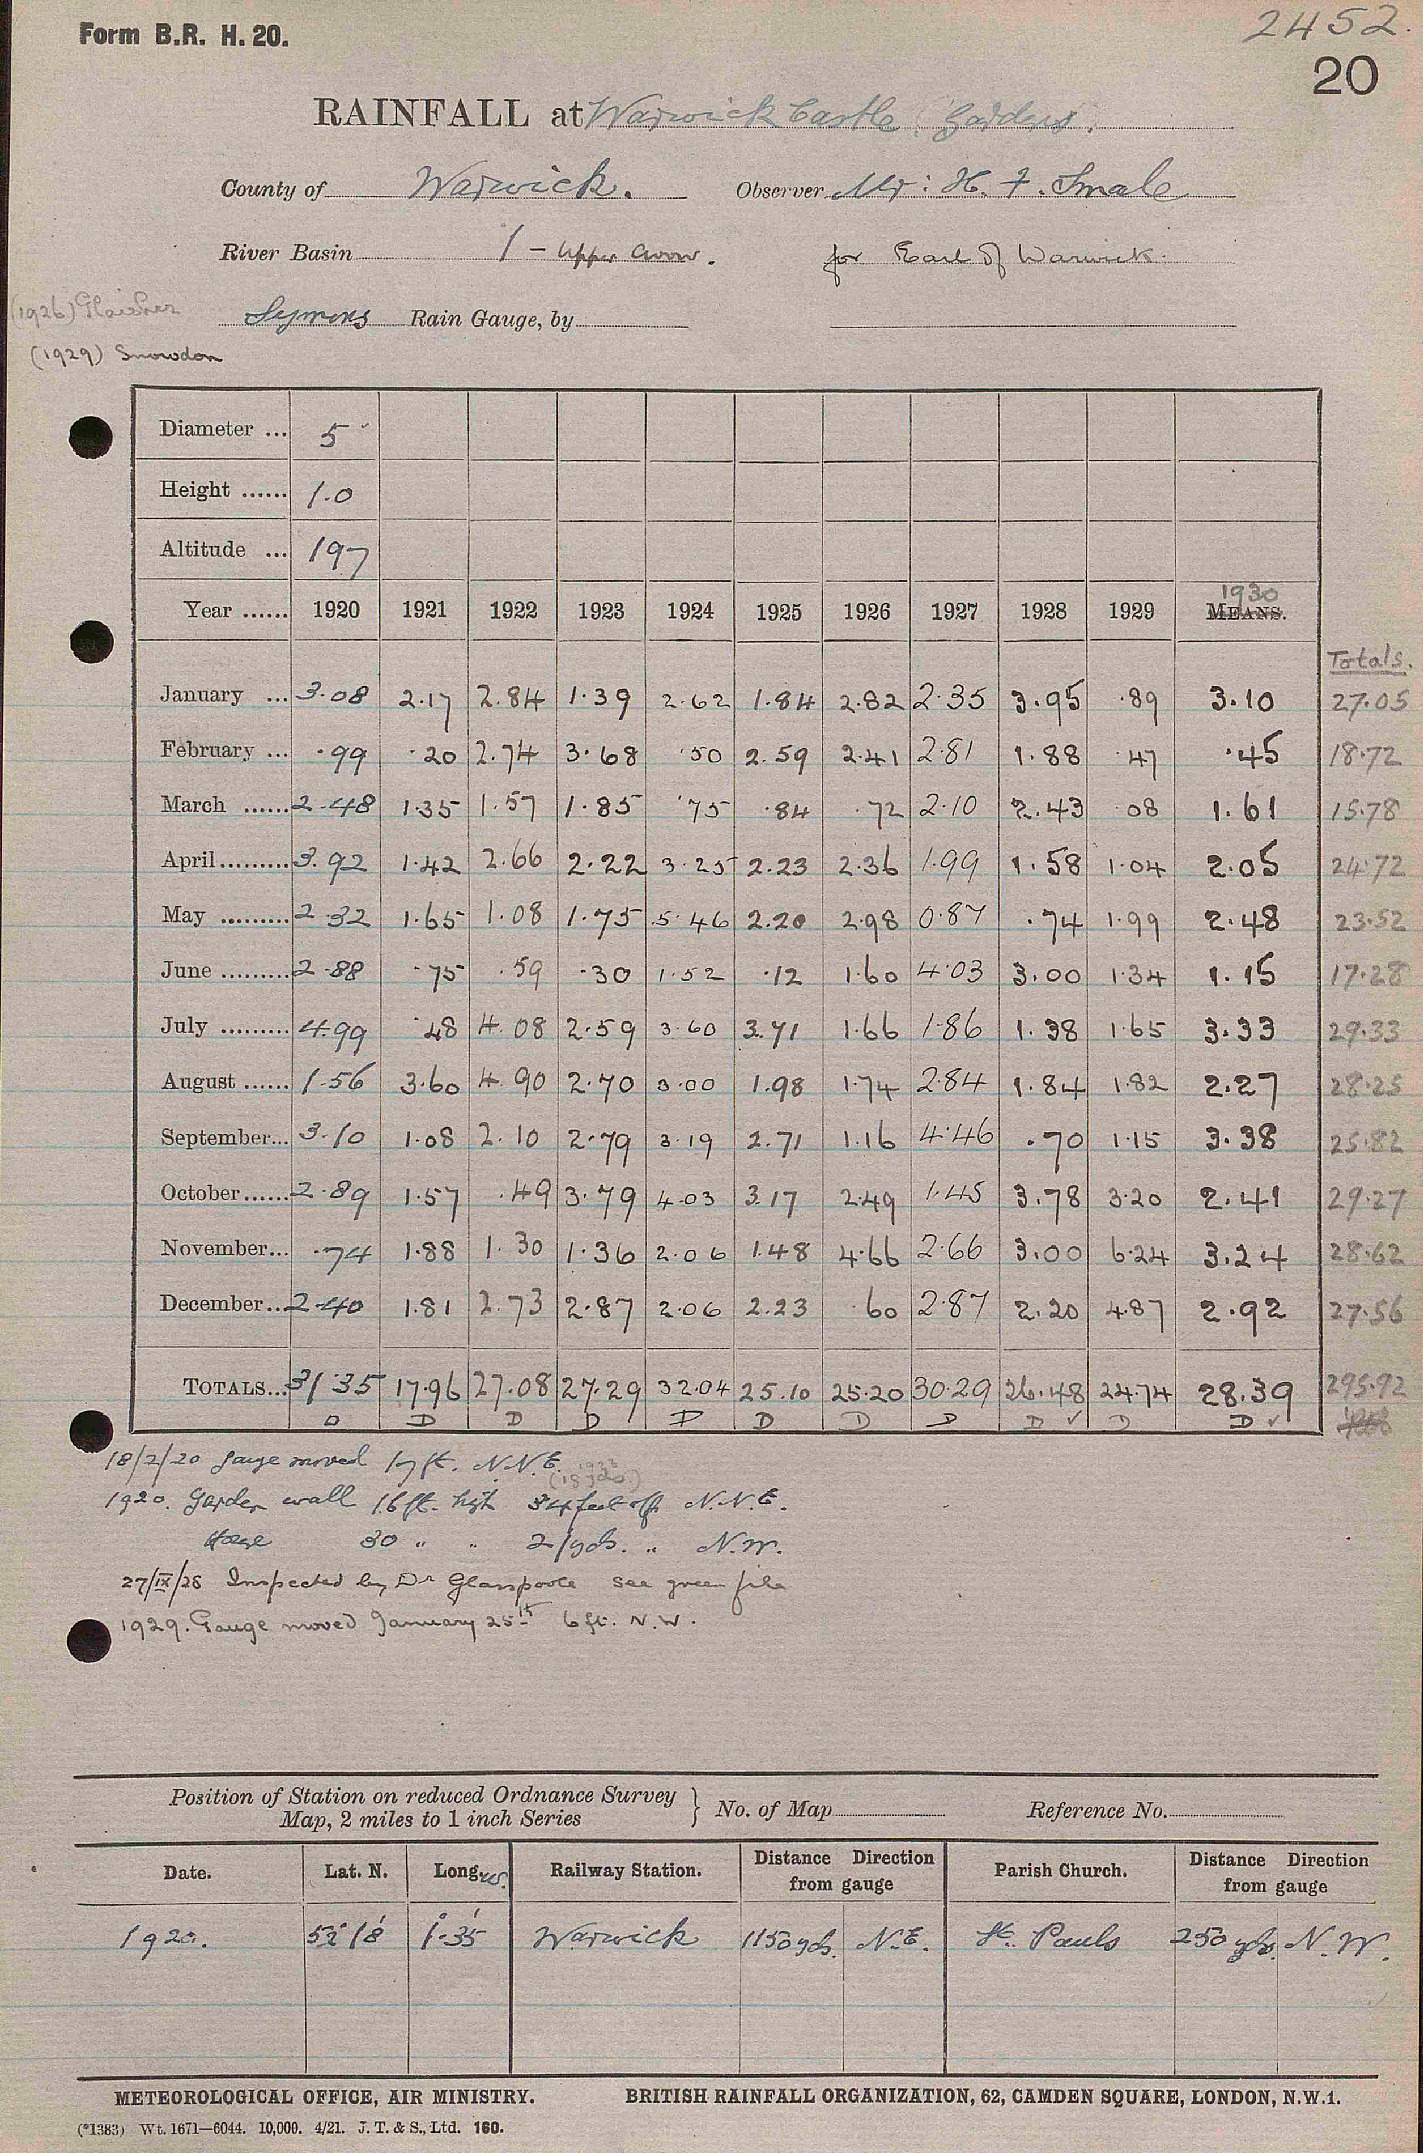 Form B.R. H. 20.
2452.
20
RAINFALL at Warwick Castle (Gardens).
County of Warwick. Observer Mr: H. F. Smale
River Basin 1 - Upper Avon. for Earl of Warwick.
(1926) Glaisher
Symons Rain Gauge, by
(1929) Snowdon
Diameter ... 5
Height ...... 1.0
Altitude ... 197
1930
Year ...... 1920 1921 1922 1923 1924 1925 1926 1927 1928 1929 MEANS.
Totals.
January ... 3.08 2.17 2.84 1.39 2.62 1.84 2.82 2.35 3.95 .89 3.10 27.05
February ... .99 .20 2.74 3.68 .50 2.59 2.41 2.81 1.88 .47 .45 18.72
March ...... 2.48 1.35 1.57 1.85 .75 .84 .72 2.10 2.43 .08 1.61 15.78
April ......... 3.92 1.42 2.66 2.22 3.25 2.23 2.36 1.99 1.58 1.04 2.05 24.72
May ......... 2.32 1.65 1.08 1.75 5.46 2.20 2.98 0.87 .74 1.99 2.48 23.52
June ......... 2.88 .75 .59 .30 1.52 .12 1.60 4.03 3.00 1.34 1.15 17.28
July ......... 4.99 .48 4.08 2.59 3.60 3.71 1.66 1.86 1.38 1.65 3.33 29.33
August ...... 1.56 3.60 4.90 2.70 3.00 1.98 1.74 2.84 1.84 1.82 2.27 28.25
September... 3.10 1.08 2.10 2.79 3.19 2.71 1.16 4.46 .70 1.15 3.38 25.82
October ...... 2.89 1.57 .49 3.79 4.03 3.17 2.49 1.45 3.78 3.20 2.41 29.27
November... .74 1.88 1.30 1.36 2.06 1.48 4.66 2.66 3.00 6.24 3.24 28.62
December... 2.40 1.81 2.73 2.87 2.06 2.23 .60 2.87 2.20 4.87 2.92 27.56
TOTALS... 31.35 17.96 27.08 27.29 32.04 25.10 25.20 30.29 26.48 24.74 28.39 295.92
D D D D D D D D D ✓ D D ✓
18/2/20 Gauge moved 17 ft. N.N.E.
1920. Garden wall 16 ft. high 34 feet off N.N.E.
30 " " 21 yds. " N.W.
27/IX/28 Inspected by Dr Glasspoole see green file
1929. Gauge moved January 25th 6 ft. N.W.
Position of Station on reduced Ordnance Survey
Map, 2 miles to 1 inch Series } No. of Map Reference No.
Date. Lat. N. Long. W. Railway Station. Distance Direction from gauge Parish Church. Distance Direction from gauge
1920. 52°18' 1°35' Warwick 1150 yds. N.E. St. Pauls 250 yds. N.W.
METEOROLOGICAL OFFICE, AIR MINISTRY. BRITISH RAINFALL ORGANIZATION, 62, CAMDEN SQUARE, LONDON, N.W.1.
(*1383) Wt. 1671—6044. 10,000. 4/21. J. T. & S., Ltd. 160.